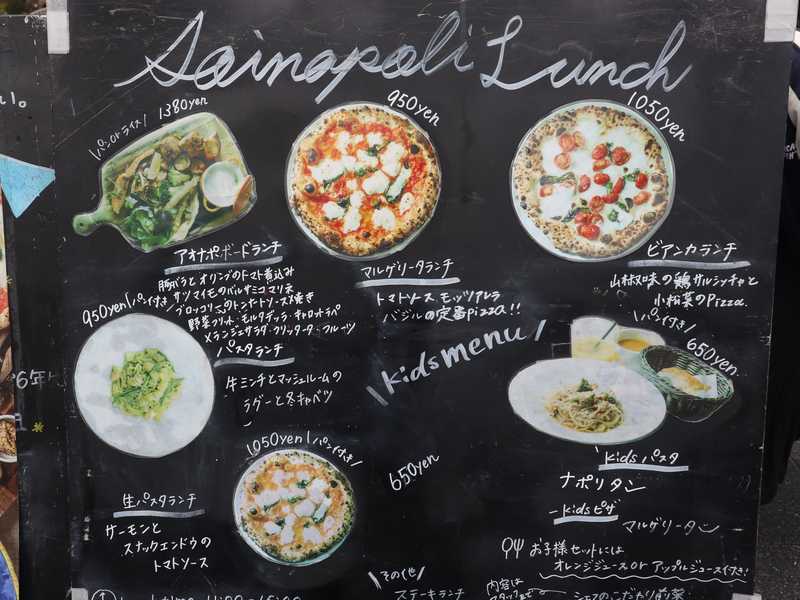 Aoinapoli Lunch
\パンorライス/ 1380yen
950yen
1050yen
アオナポボードランチ
豚バラとオリーブのトマト煮込み
サツマイモのバルサミコマリネ
ブロッコリーのトンナートソース焼き
野菜フリット・モルタデッラ・キャロットラペ
メランジェサラダ・フリッタータ・フルーツ
マルゲリータランチ
トマトソース モッツアレラ
バジルの定番pizza!!
ビアンカランチ
山椒味の鶏サルシッチャと
小松菜のPizza.
950yen \パン付き
パスタランチ
牛ミンチとマッシュルームの
ラグーと冬キャベツ
\kids menu/
\パン付き/
650yen
Kidsパスタ
ナポリタン
Kidsピザ
マルゲリータ
650yen
お子様セットには
オレンジジュース or アップルジュース付き!
1050yen \パン付き/
生パスタランチ
サーモンと
スナックエンドウの
トマトソース
\その他/
ステーキランチ
内容は
シェフのこだわり前菜
6年